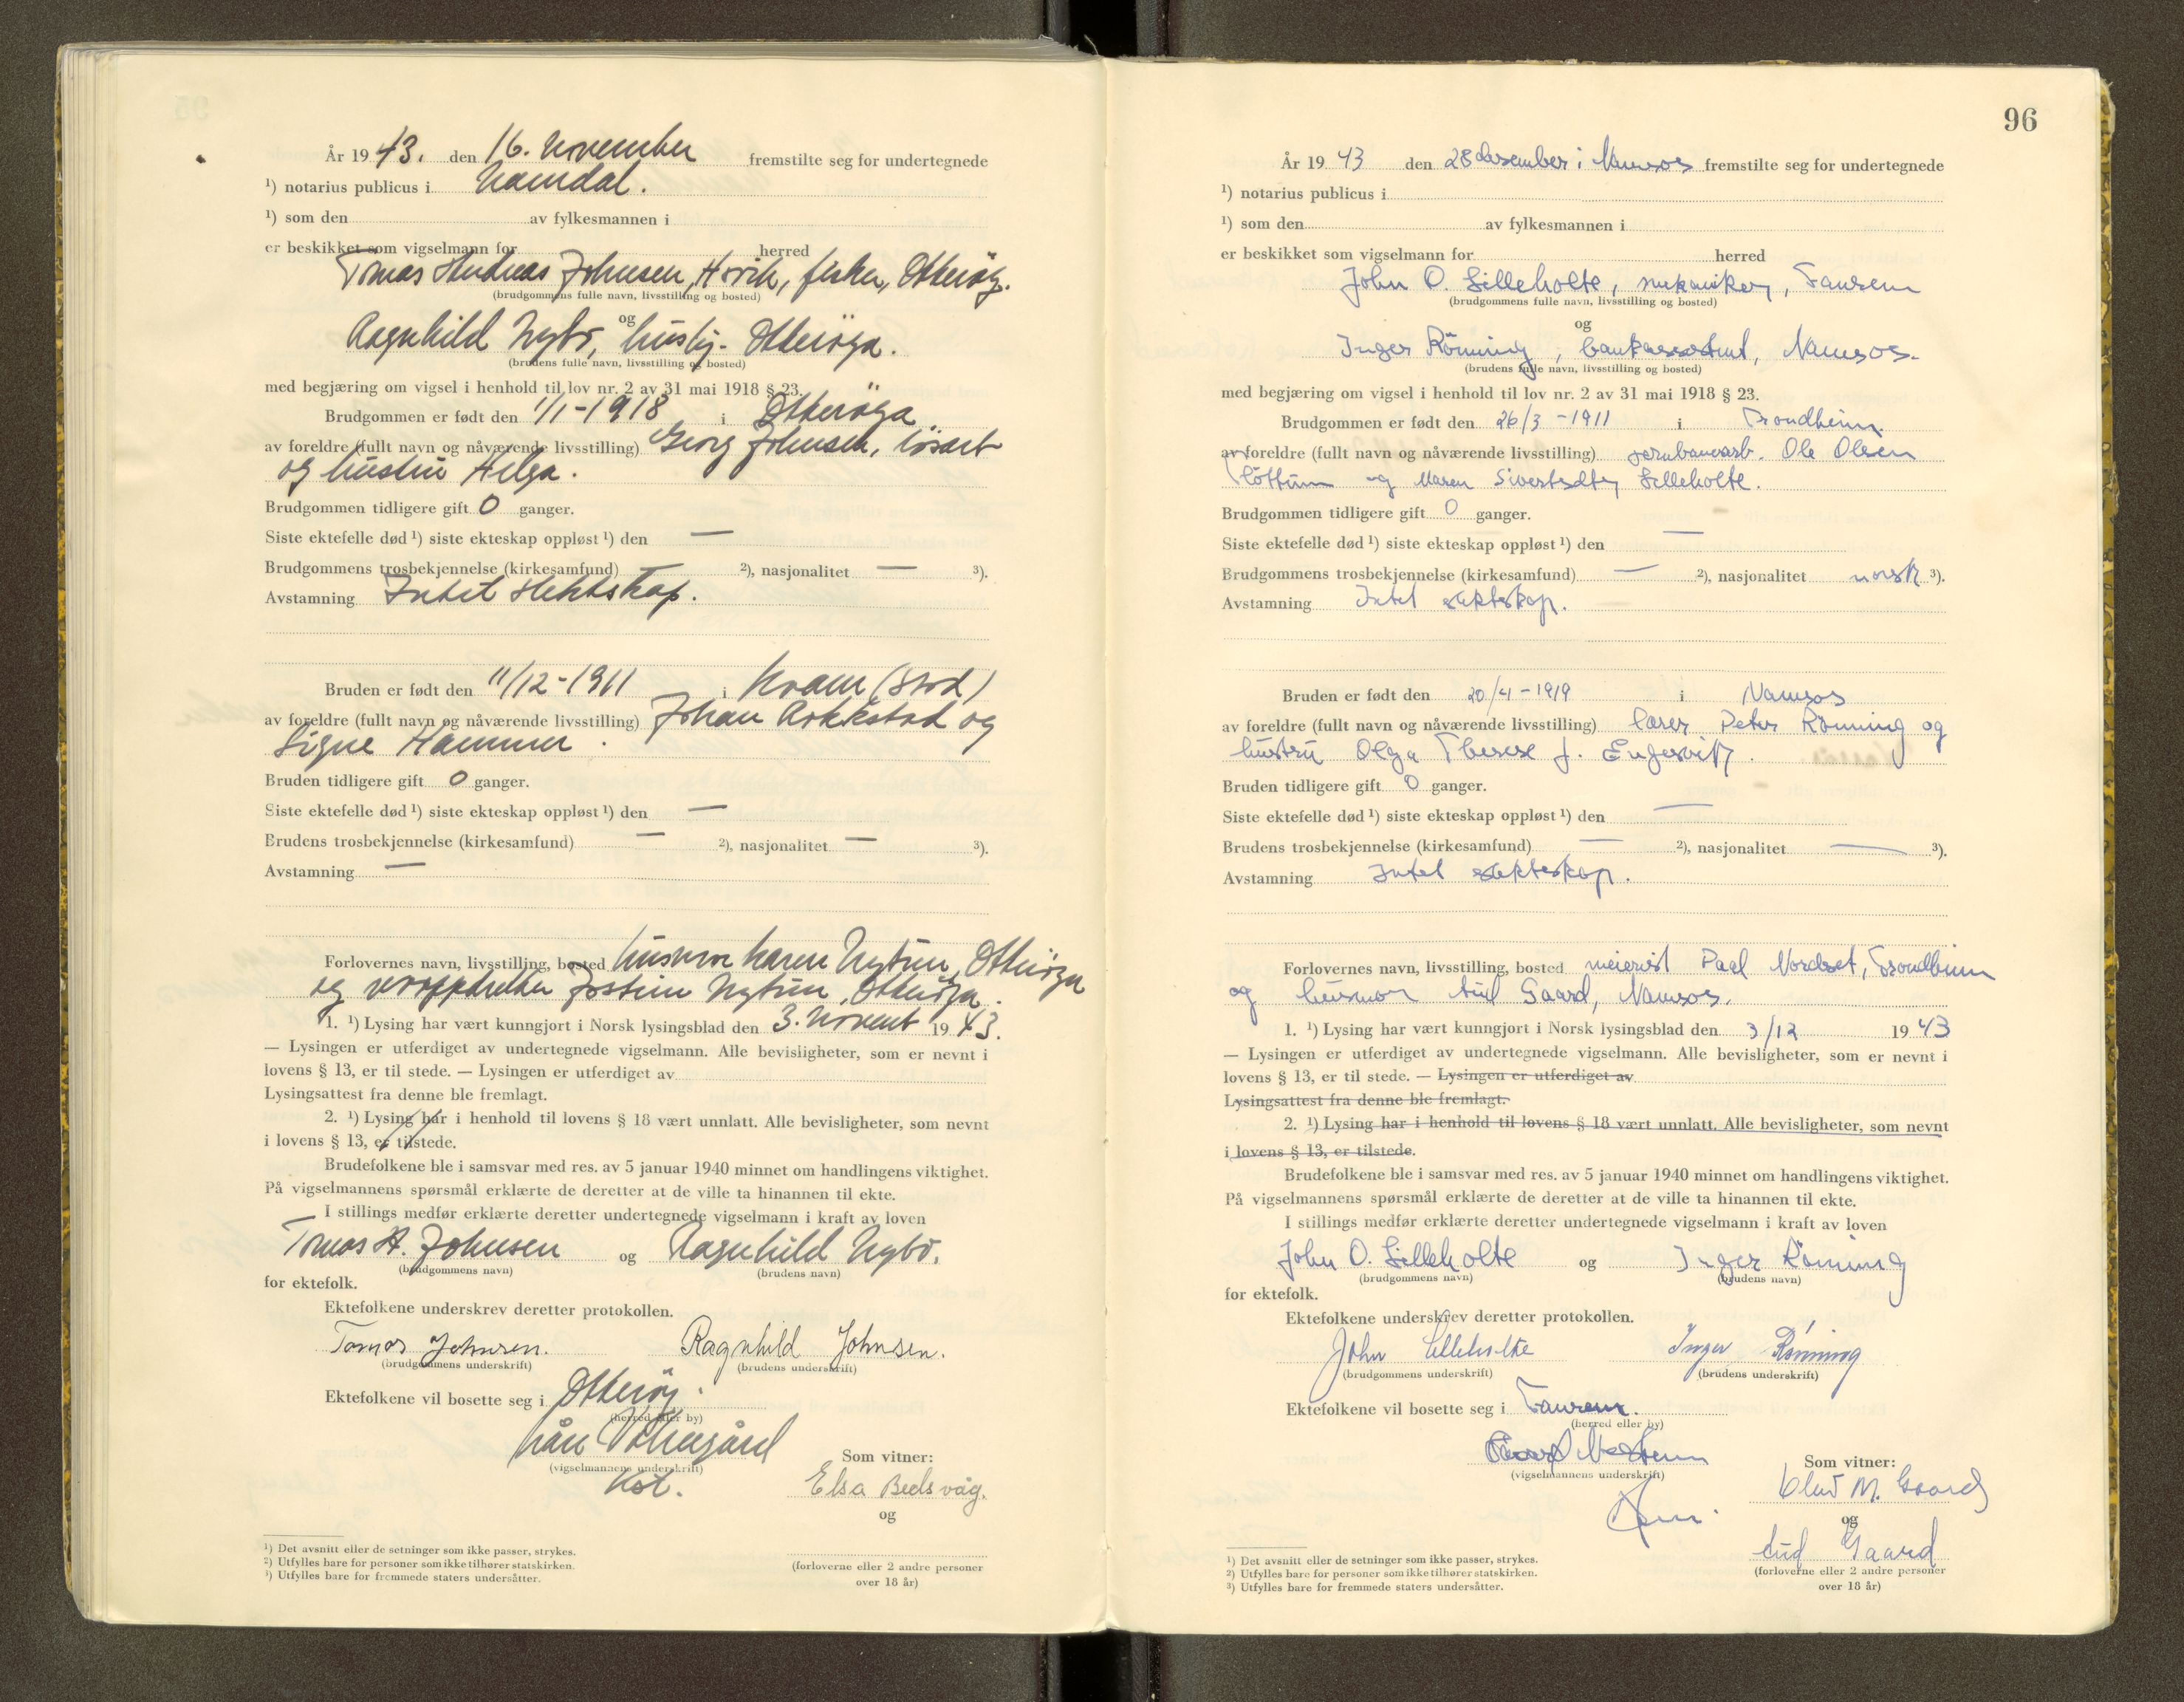 År 19 43. den 16. November fremstilte seg for undertegnede
¹) notarius publicus i Namdal.
¹) som den av fylkesmannen i
er beskikket som vigselmann for herred
Tomas Andreas Johnsen, Hovik, fisker, Otterøy.
(brudgommens fulle navn, livsstilling og bosted)
og
Ragnhild Nybö, hushj. Otteröya.
(brudens fulle navn, livsstilling og bosted)
med begjæring om vigsel i henhold til lov nr. 2 av 31 mai 1918 § 23.
Brudgommen er født den 1/1-1918 i Otteröya
av foreldre (fullt navn og nåværende livsstilling) Georg Johnsen, lösarb
og hustru Helga.
Brudgommen tidligere gift 0 ganger.
Siste ektefelle død ¹) siste ekteskap oppløst ¹) den —
Brudgommens trosbekjennelse (kirkesamfund) — ²), nasjonalitet — ³).
Avstamning Intet slektskap.
Bruden er født den 11/12-1911 i Kvam (Stod)
av foreldre (fullt navn og nåværende livsstilling) Johan Rokkstad og
Signe Hammer.
Bruden tidligere gift 0 ganger.
Siste ektefelle død ¹) siste ekteskap oppløst ¹) den —
Brudens trosbekjennelse (kirkesamfund) — ²), nasjonalitet — ³).
Avstamning —
Forlovernes navn, livsstilling, bosted husmor Karen Nytun, Otteröya
og Jostein Nytun, Otteröya.
1. ¹) Lysing har vært kunngjort i Norsk lysingsblad den 3. novemb 19 43.
— Lysingen er utferdiget av undertegnede vigselmann. Alle bevisligheter, som er nevnt i
lovens § 13, er til stede. — Lysingen er utferdiget av
Lysingsattest fra denne ble fremlagt.
2. ¹) Lysing har i henhold til lovens § 18 vært unnlatt. Alle bevisligheter, som nevnt
i lovens § 13, er tilstede.
Brudefolkene ble i samsvar med res. av 5 januar 1940 minnet om handlingens viktighet.
På vigselmannens spørsmål erklærte de deretter at de ville ta hinannen til ekte.
I stillings medfør erklærte deretter undertegnede vigselmann i kraft av loven
Tomas A. Johnsen og Ragnhild Nybö.
(brudgommens navn) (brudens navn)
for ektefolk.
Ektefolkene underskrev deretter protokollen.
Tomas Johnsen. Ragnhild Johnsen.
(brudgommens underskrift) (brudens underskrift)
Ektefolkene vil bosette seg i Otteröy.
(herred eller by)
(vigselmannens underskrift)
Kst.
Som vitner:
Elsa Bedsvåg.
og
(forloverne eller 2 andre personer
over 18 år)
¹) Det avsnitt eller de setninger som ikke passer, strykes.
²) Utfylles bare for personer som ikke tilhører statskirken.
³) Utfylles bare for fremmede staters undersåtter.
96
År 19 43 den 28 desember i Namsos fremstilte seg for undertegnede
¹) notarius publicus i
¹) som den av fylkesmannen i
er beskikket som vigselmann for herred
John O. Lilleholte, mekaniker, Faurem
(brudgommens fulle navn, livsstilling og bosted)
og
Inger Rönning, bankassistent, Namsos.
(brudens fulle navn, livsstilling og bosted)
med begjæring om vigsel i henhold til lov nr. 2 av 31 mai 1918 § 23.
Brudgommen er født den 26/3-1911 i Trondheim.
av foreldre (fullt navn og nåværende livsstilling) jernbanearb. Ole Olsen
og Maren Sivertsdtr Lilleholte.
Brudgommen tidligere gift 0 ganger.
Siste ektefelle død ¹) siste ekteskap oppløst ¹) den —
Brudgommens trosbekjennelse (kirkesamfund) — ²), nasjonalitet norsk ³).
Avstamning Intet slektskap.
Bruden er født den 20/4-1919 i Namsos
av foreldre (fullt navn og nåværende livsstilling) lærer Peter Rönning og
hustru Olga Therese f. Engesvik.
Bruden tidligere gift 0 ganger.
Siste ektefelle død ¹) siste ekteskap oppløst ¹) den —
Brudens trosbekjennelse (kirkesamfund) — ²), nasjonalitet — ³).
Avstamning Intet slektskap.
Forlovernes navn, livsstilling, bosted meierist Paal Nordset, Trondheim
og husmor Aud Gaard, Namsos.
1. ¹) Lysing har vært kunngjort i Norsk lysingsblad den 3/12 19 43
— Lysingen er utferdiget av undertegnede vigselmann. Alle bevisligheter, som er nevnt i
lovens § 13, er til stede. — Lysingen er utferdiget av
Lysingsattest fra denne ble fremlagt.
2. ¹) Lysing har i henhold til lovens § 18 vært unnlatt. Alle bevisligheter, som nevnt
i lovens § 13, er tilstede.
Brudefolkene ble i samsvar med res. av 5 januar 1940 minnet om handlingens viktighet.
På vigselmannens spørsmål erklærte de deretter at de ville ta hinannen til ekte.
I stillings medfør erklærte deretter undertegnede vigselmann i kraft av loven
John O. Lilleholte og Inger Rönning
(brudgommens navn) (brudens navn)
for ektefolk.
Ektefolkene underskrev deretter protokollen.
John Lilleholte Inger Rönning
(brudgommens underskrift) (brudens underskrift)
Ektefolkene vil bosette seg i Faurem.
(herred eller by)
(vigselmannens underskrift)
Som vitner:
Olav M. Gaard
og
Aud Gaard
(forloverne eller 2 andre personer
over 18 år)
¹) Det avsnitt eller de setninger som ikke passer, strykes.
²) Utfylles bare for personer som ikke tilhører statskirken.
³) Utfylles bare for fremmede staters undersåtter.